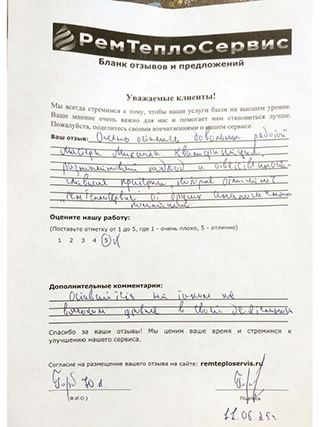 РемТеплоСервис
Бланк отзывов и предложений
Уважаемые клиенты!
Мы всегда стремимся к тому, чтобы наши услуги были на высшем уровне.
Ваше мнение очень важно для нас и помогает нам становиться лучше.
Пожалуйста, поделитесь своими впечатлениями о нашем сервисе.
Ваш отзыв: Очень довольны работой
мастера Михаила Квалификация,
подход и
главные критерии, которые отличают
РемТеплоСервис от других аналогичных
компаний
Оцените нашу работу:
(Поставьте отметку от 1 до 5, где 1 - очень плохо, 5 - отлично)
1 2 3 4 5
Дополнительные комментарии:
Оставайтесь на таком же
высоком уровне в своей
Спасибо за ваши отзывы! Мы ценим ваше время и стремимся к
улучшению нашего сервиса.
Согласие на размещение вашего отзыва на сайте: remteploservis.ru
(Ф.И.О.) Подпись
11.06.25г.